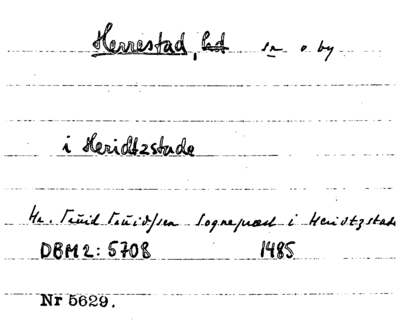 Herrestad, hd sn o by
i Heridtzstade
Hr. Truid Truidssen Sognepræst i Heridtzstad
DBM 2: 5708 1485
Nr 5629.